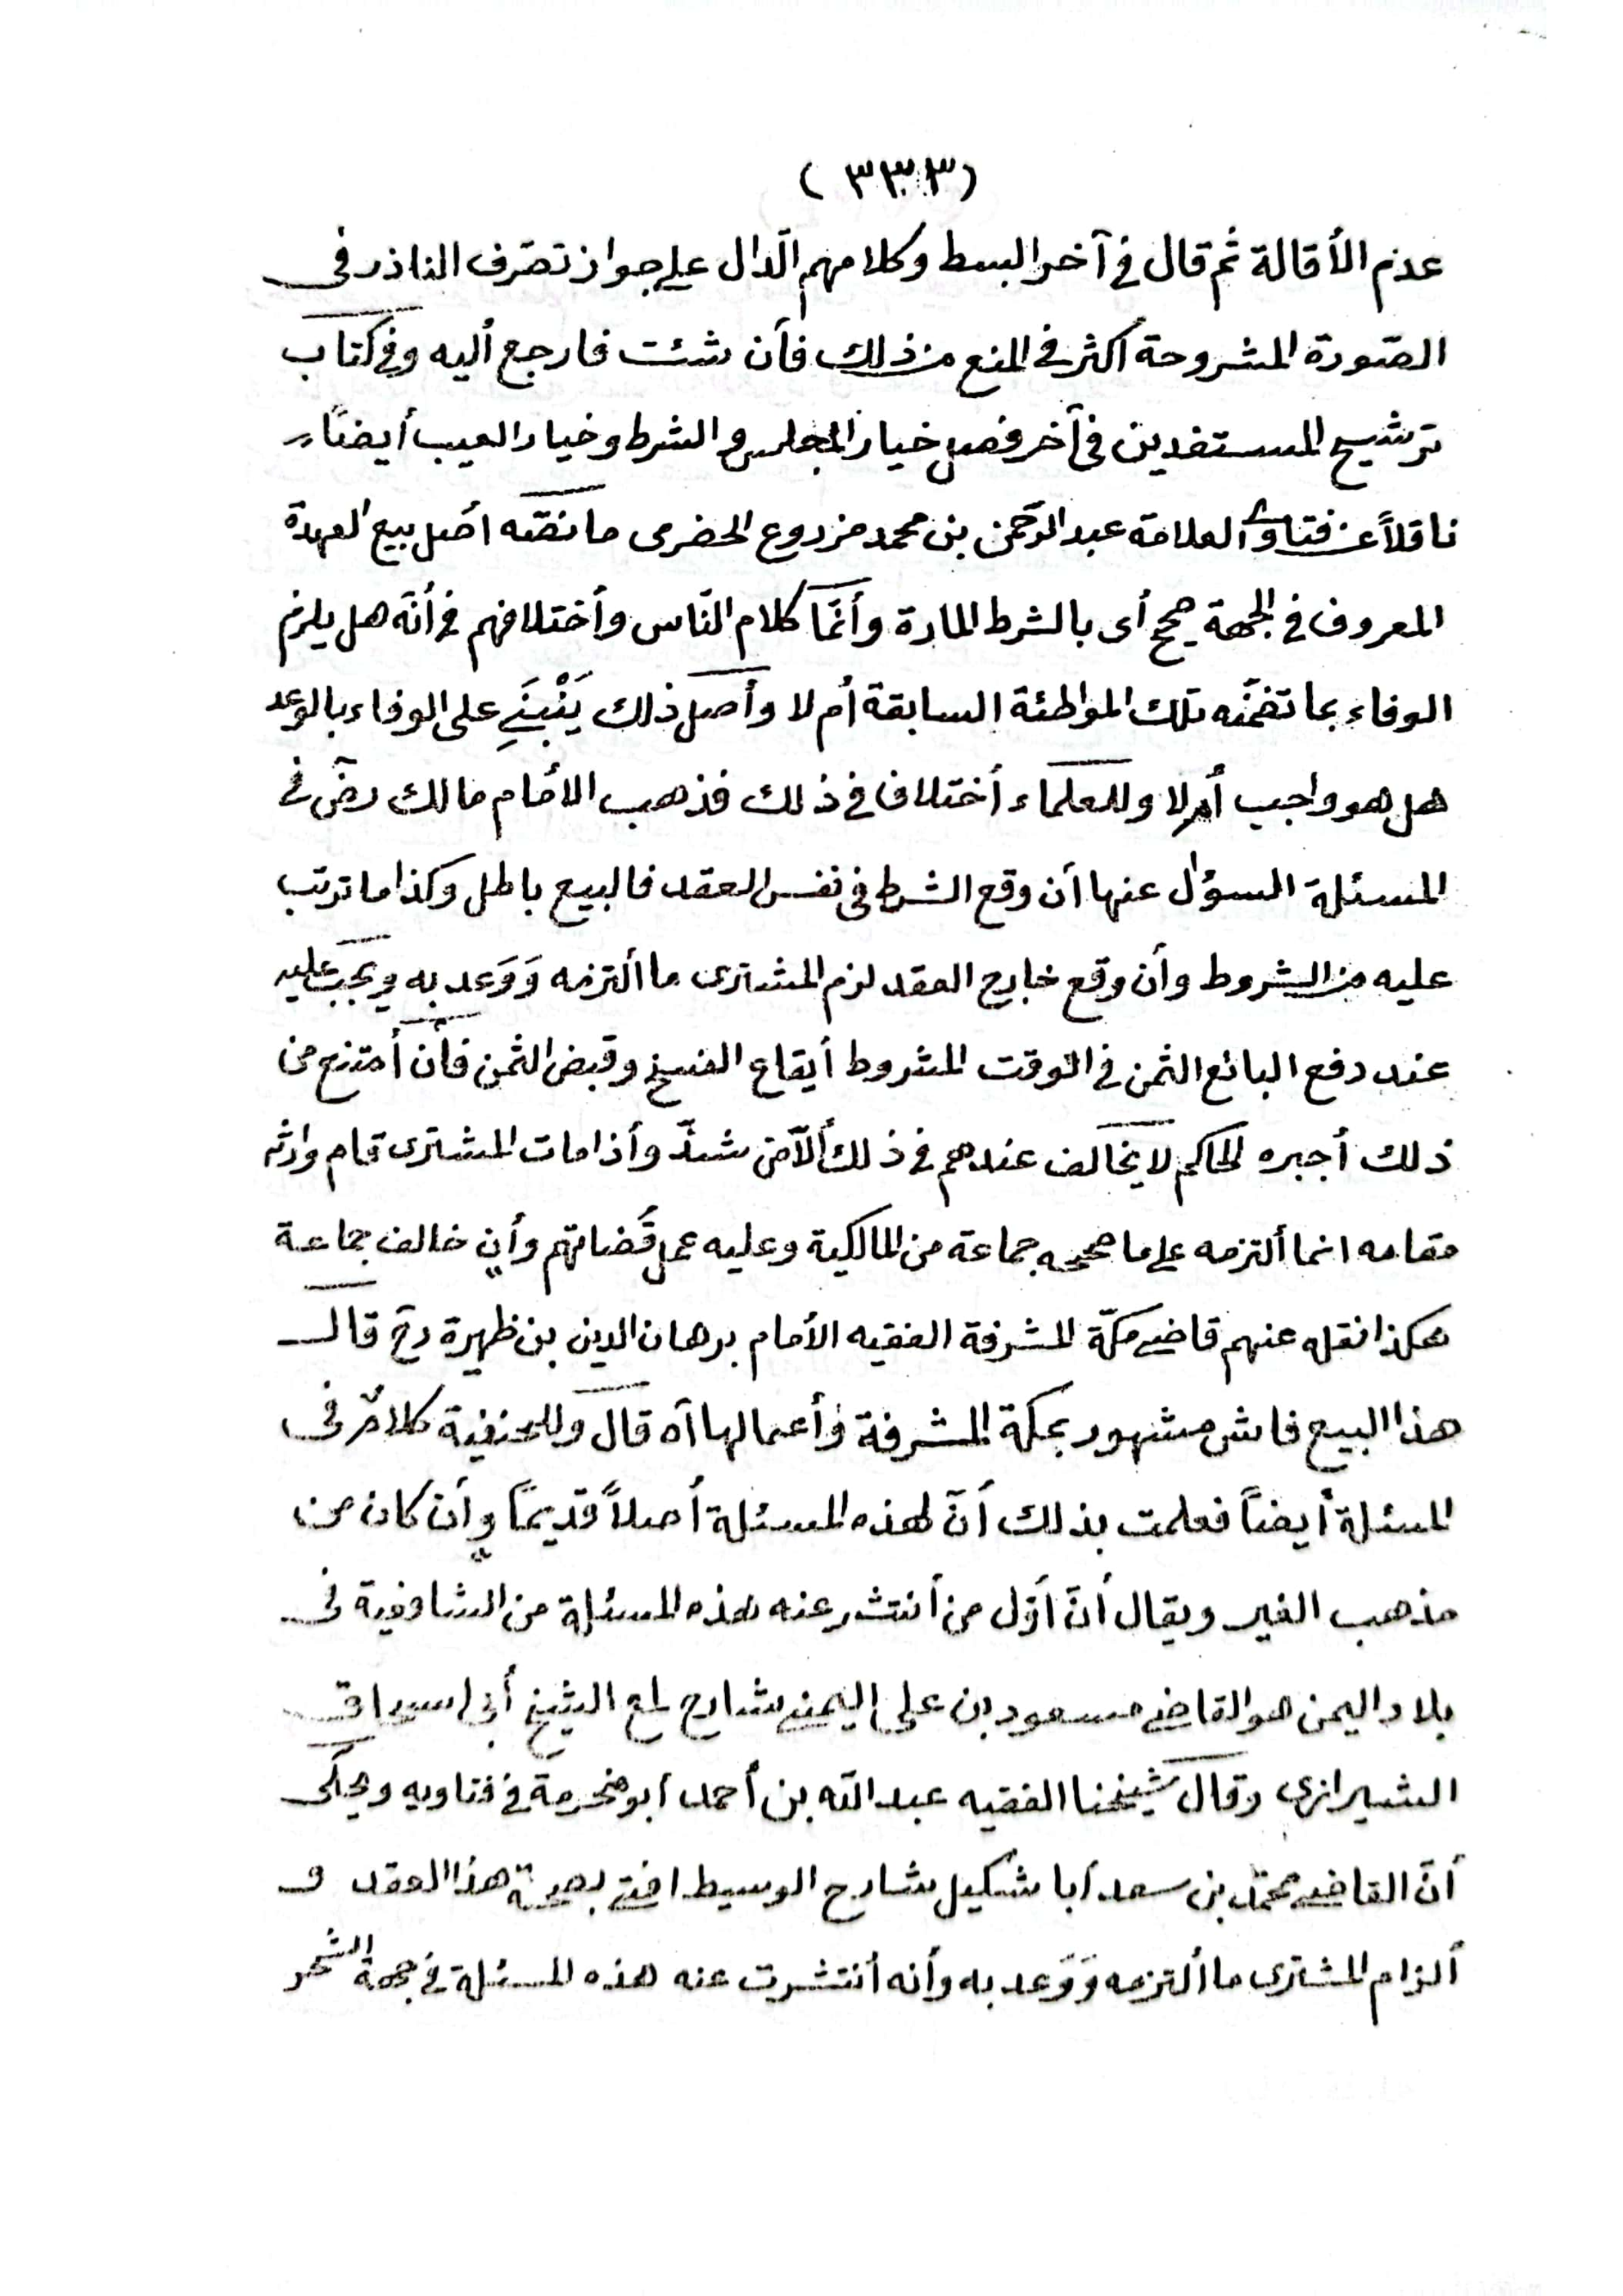 (٣٣٣)
عدم الأقالة ثم قال في آخر البسط وكلامهم الّدال على جواز تصّرف الناذر في
الصّورة المشروحة أكثر في المنع من ذلك فأن شئت فارجع أليه وفي كتاب
ترشيح المستفدين في آخر فصل خيار المجلس والشرط وخيار العيب أيضاً
ناقلاً عن فتاوى العلامة عبد الرّحمن بن محمد مزروع الحضرمى ما نصّه اصل بيع العهدة
المعروف في الجهة صحيح أى بالشرط المارة وأنّما كلام النّاس وأختلافهم في أنّه هل يلزم
الوفاء بما تضمّنه تلك المواطئة السابقة أم لا وأصل ذلك يَنْبَنِي على الوفاء بالوعد
هل هو واجب أم لا وللعلماء أختلاف في ذلك فذهب الأمام مالك رضّ في
المسئلة السوؤل عنها أن وقع الشرط في نفس العقد فالبيع باطل وكذا ما ترتّب
عليه من الشروط وأن وقع خارج العقد لزم المشترى ما ألتزمه وَوَعد به ويجب عليه
عند دفع البائع الثمن في الوقت المشروط أيقاع الفسخ وقبض الثمن فأن أمتنع من
ذلك أجبره الحاكم لا يخالف عندهم في ذلك ألّا من شذّ وأذا مات المشترى قام وارثه
مقامه انما ألتزمه على ما صححه جماعة من المالكية وعليه عمل قُضاتهم وأن خالف جماعة
هكذا نقله عنهم قاضي مكّة المشرفة الفقيه الأمام برهان الدين بن ظهيرة رح قال
هذا البيع فاش مشهور بمكة المشرفة وأعمالها اه قال وللحنفية كلامٌ في
المسئلة أيضاً فعلمت بذلك أنّ لهذه المسئلة أصلاً قديماً وأن كان من
مذهب الغير ويقال أنّ أوّل من أنتشر عنه هذه المسئلة من الشافعية في
بلاد اليمن هو القاضي مسعود بن على اليمني شارح لمع الشيخ أبى اسحاق
الشيرازى وقال شيخنا الفقيه عبد الله بن أحمد ابو مخرمة في فتاويه ويحكى
أنّ القاضي محمّد بن سعد أبا شكيل شارح الوسيط افتى بصحة هذا العقد و
ألزام المشترى ما ألتزمه وَوَعد به وأنه أنتشرت عنه هذه المسئلة في جهة الشحر